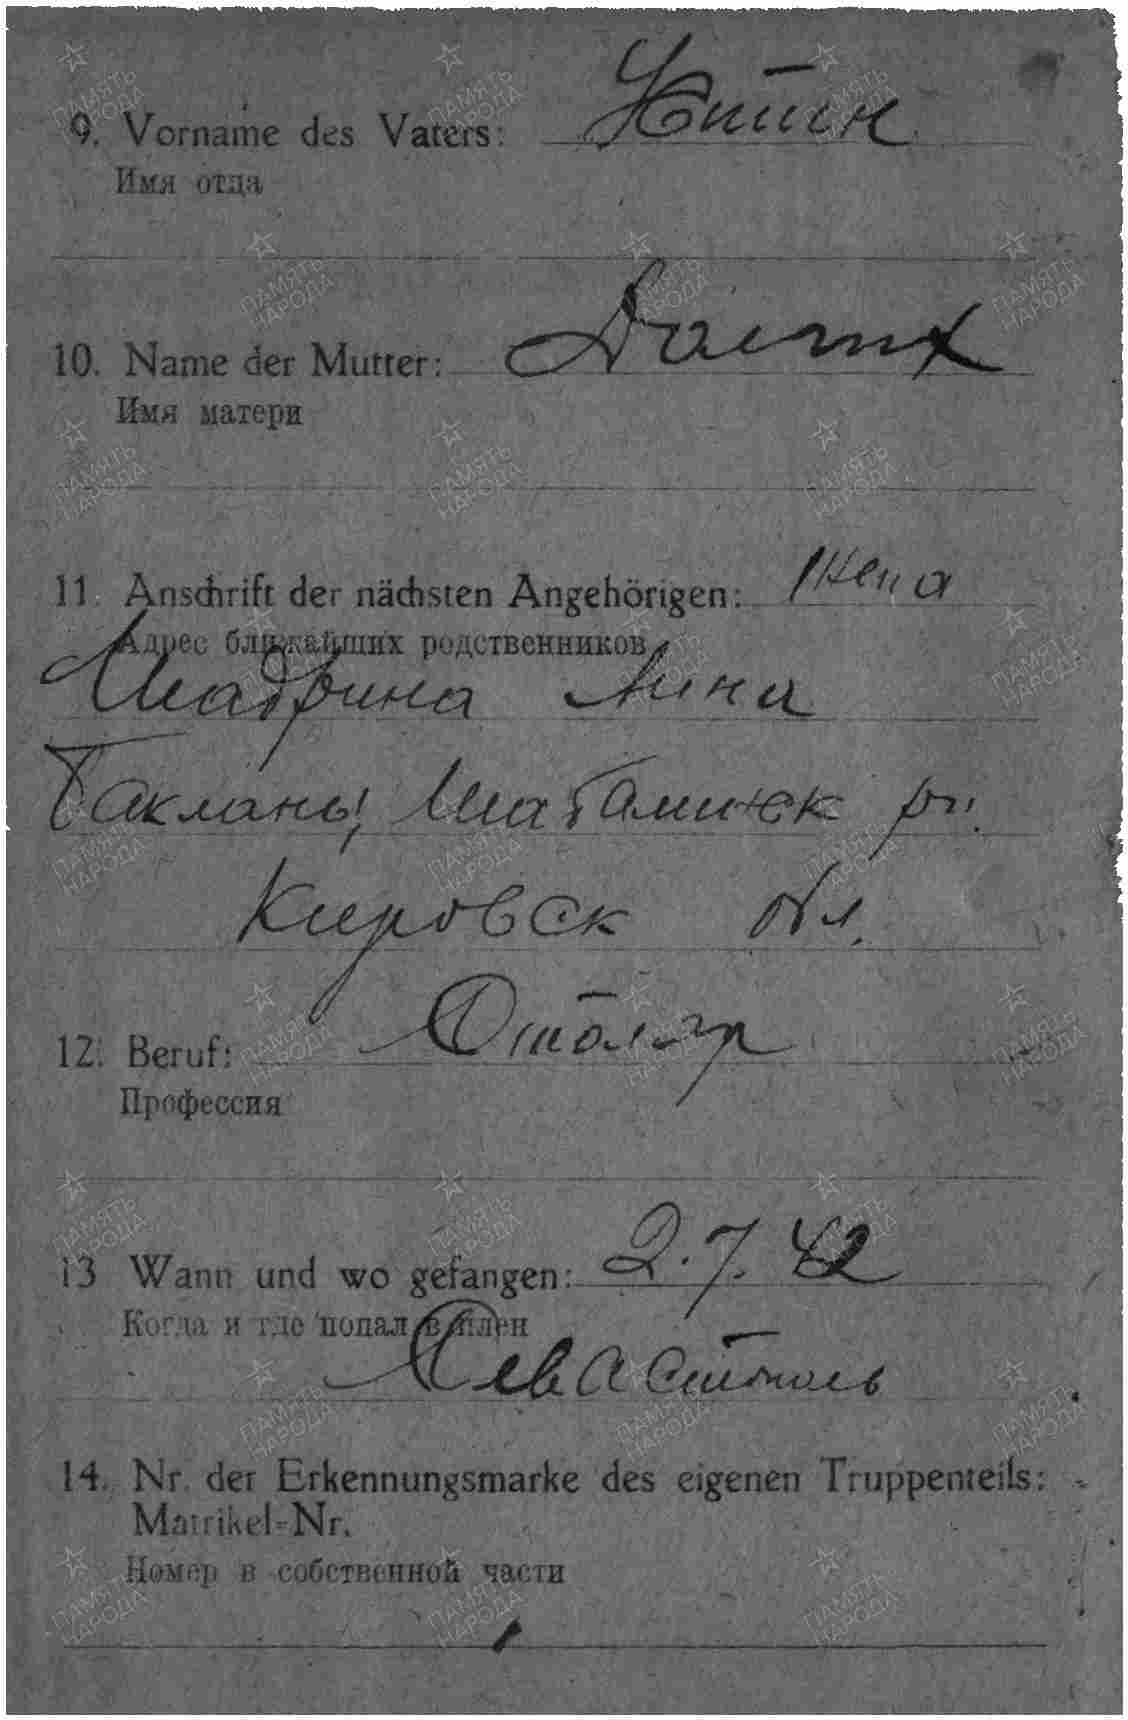 9. Vorname des Vaters:
Имя отца
10. Name der Mutter: Долгих
Имя матери
11. Anschrift der nächsten Angehörigen: жена
Адрес ближайших родственников
Шадрина Анна
Бакланы, Шабалинск рн.
Кировск обл.
12. Beruf: Столяр
Профессия
13 Wann und wo gefangen: 2.7.42
Когда и где попал в плен
Севастополь
14. Nr. der Erkennungsmarke des eigenen Truppenteils:
Matrikel-Nr.
Номер в собственной части
ПАМЯТЬ НАРОДА